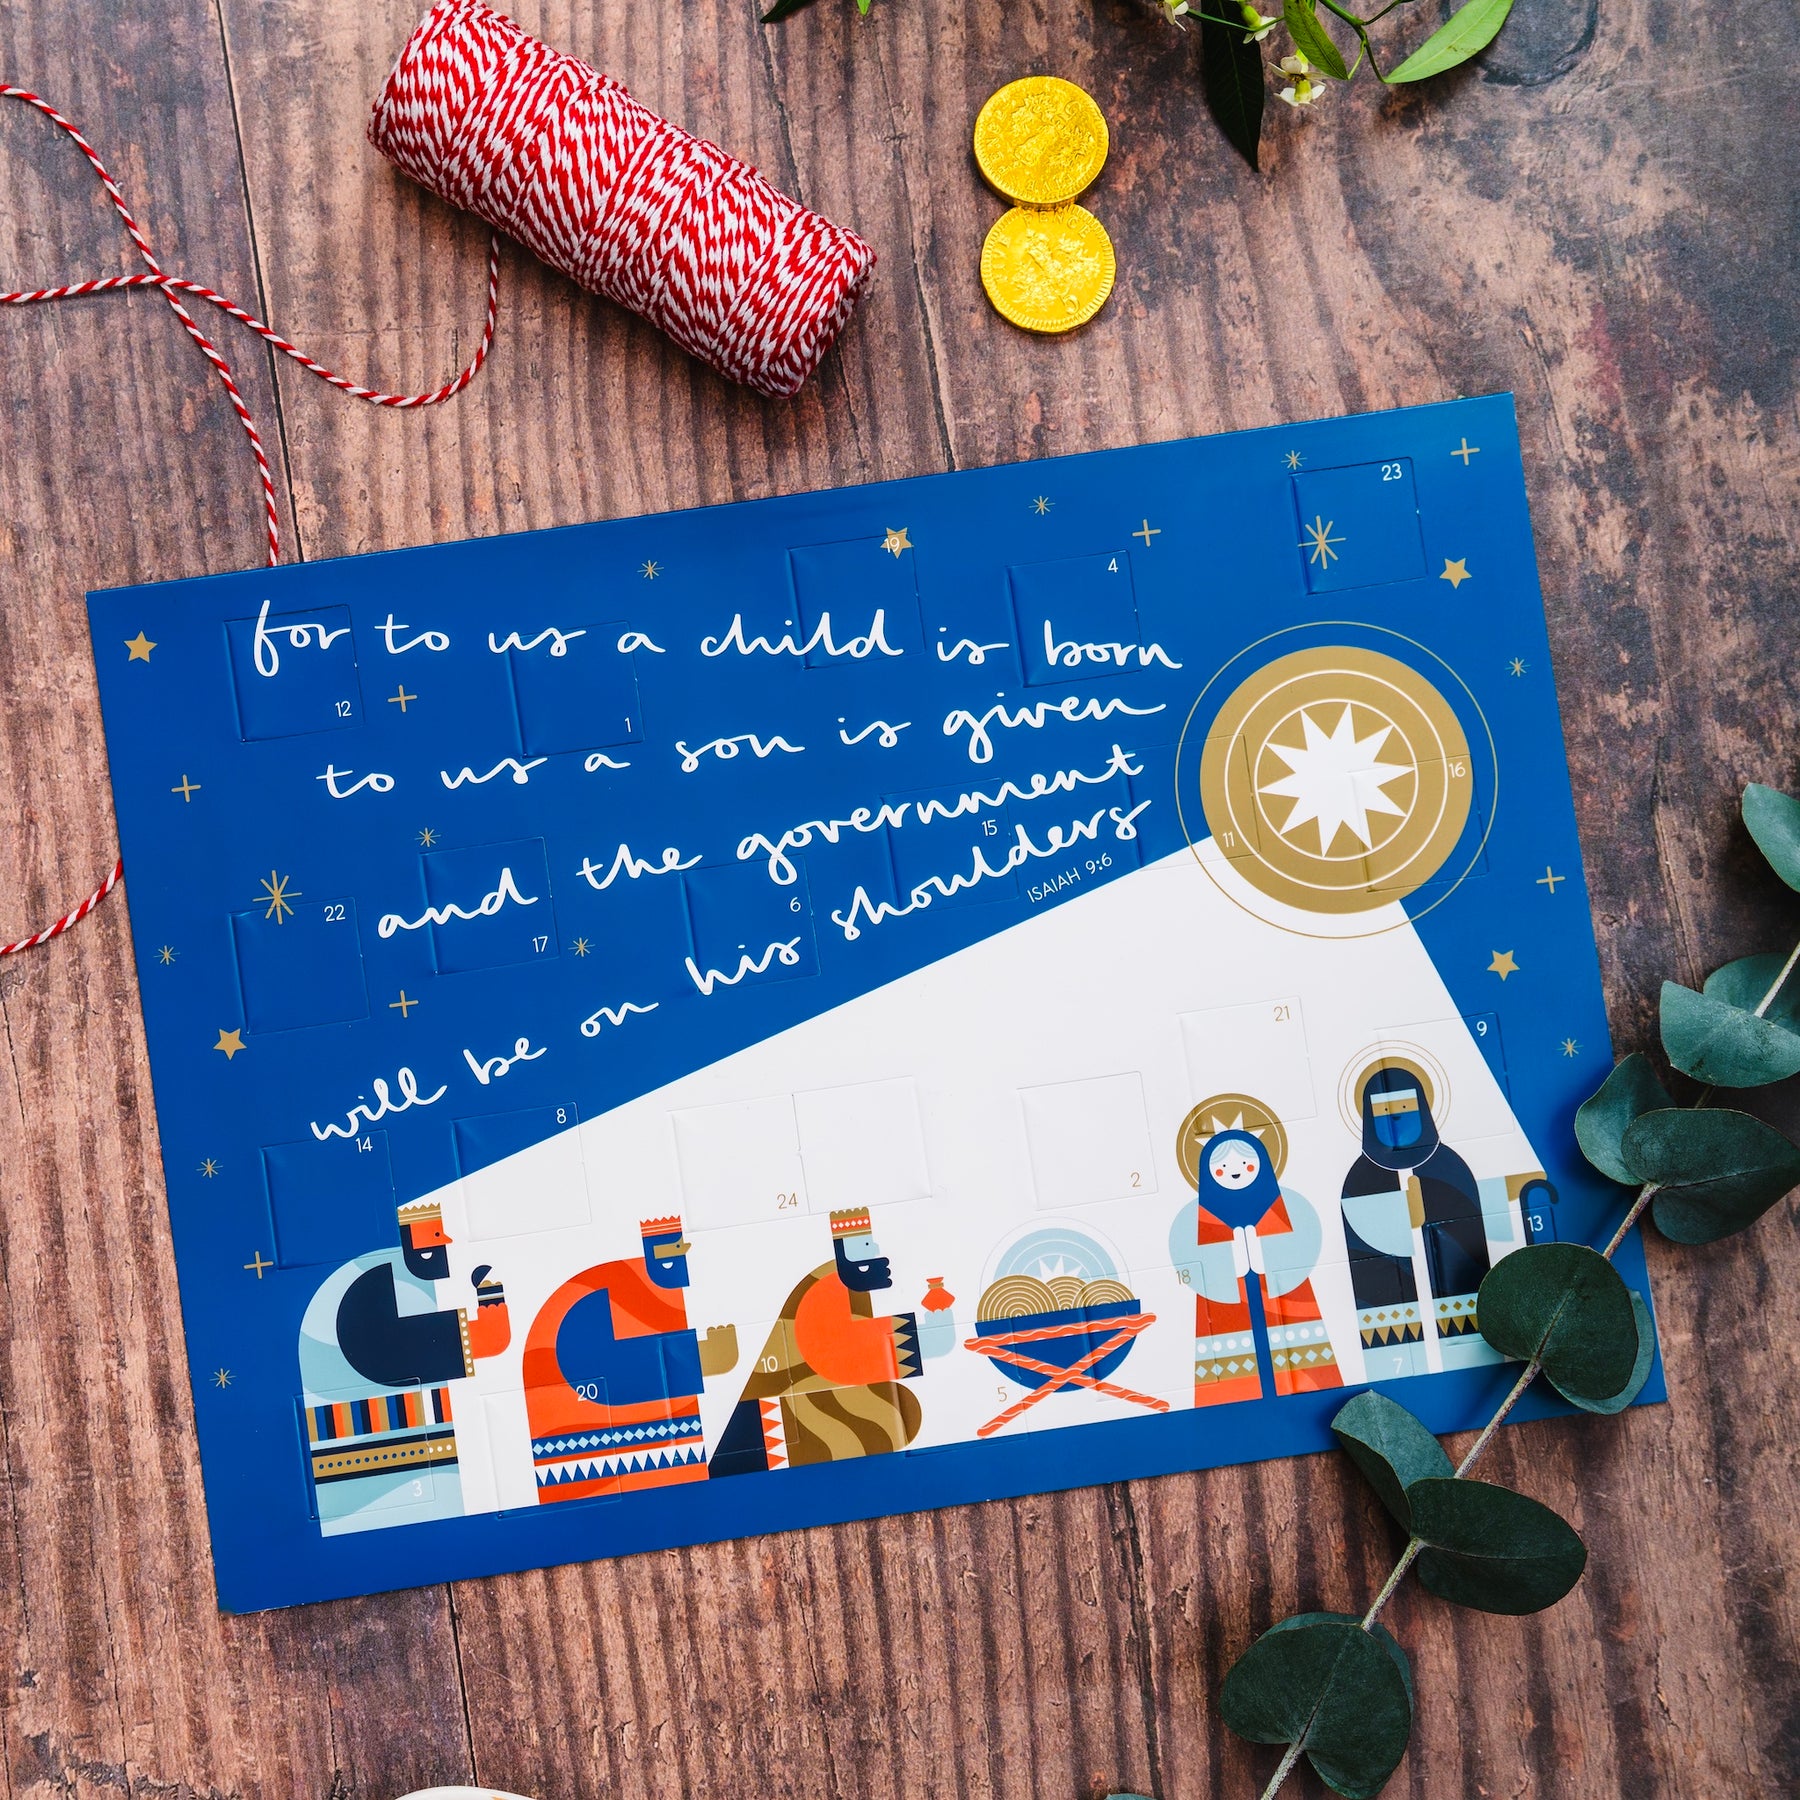 FIVE PENCE
23
19
4
for to us a child is born
12
1
to us a son is given
16
and the government
15
11
shoulders
ISAIAH 9:6
22
17
6
will be on his
21
9
8
14
24
2
13
18
10
7
20
5
3